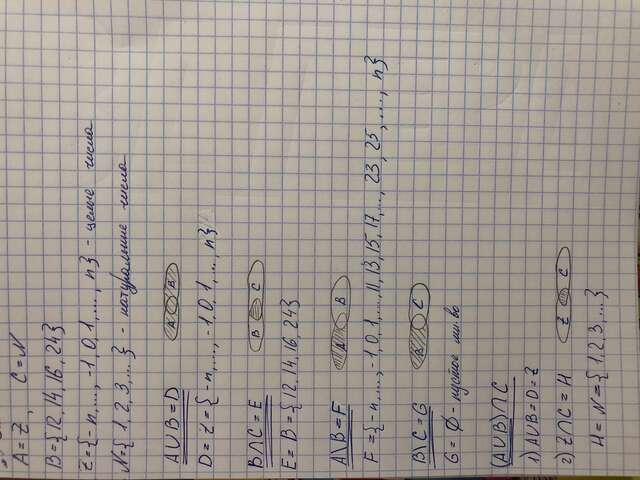 A = Z,   C = N
B = {12, 14, 16, 24}
Z = {-n, ..., -1, 0, 1, ..., n} - целые числа
N = {1, 2, 3, ...} - натуральные числа
A∪B = D   A B
D = Z = {-n, ..., -1, 0, 1, ..., n}
B∩C = E   B C
E = B = {12, 14, 16, 24}
A\B = F   A B
F = {-n, ..., -1, 0, 1, ..., 11, 13, 15, 17, ..., 23, 25, ..., n}
B\C = G   B C
G = ∅ - пустое мн-во
(A∪B)∩C
1) A∪B = D = Z
2) Z∩C = H   Z C
H = N = {1, 2, 3, ...}